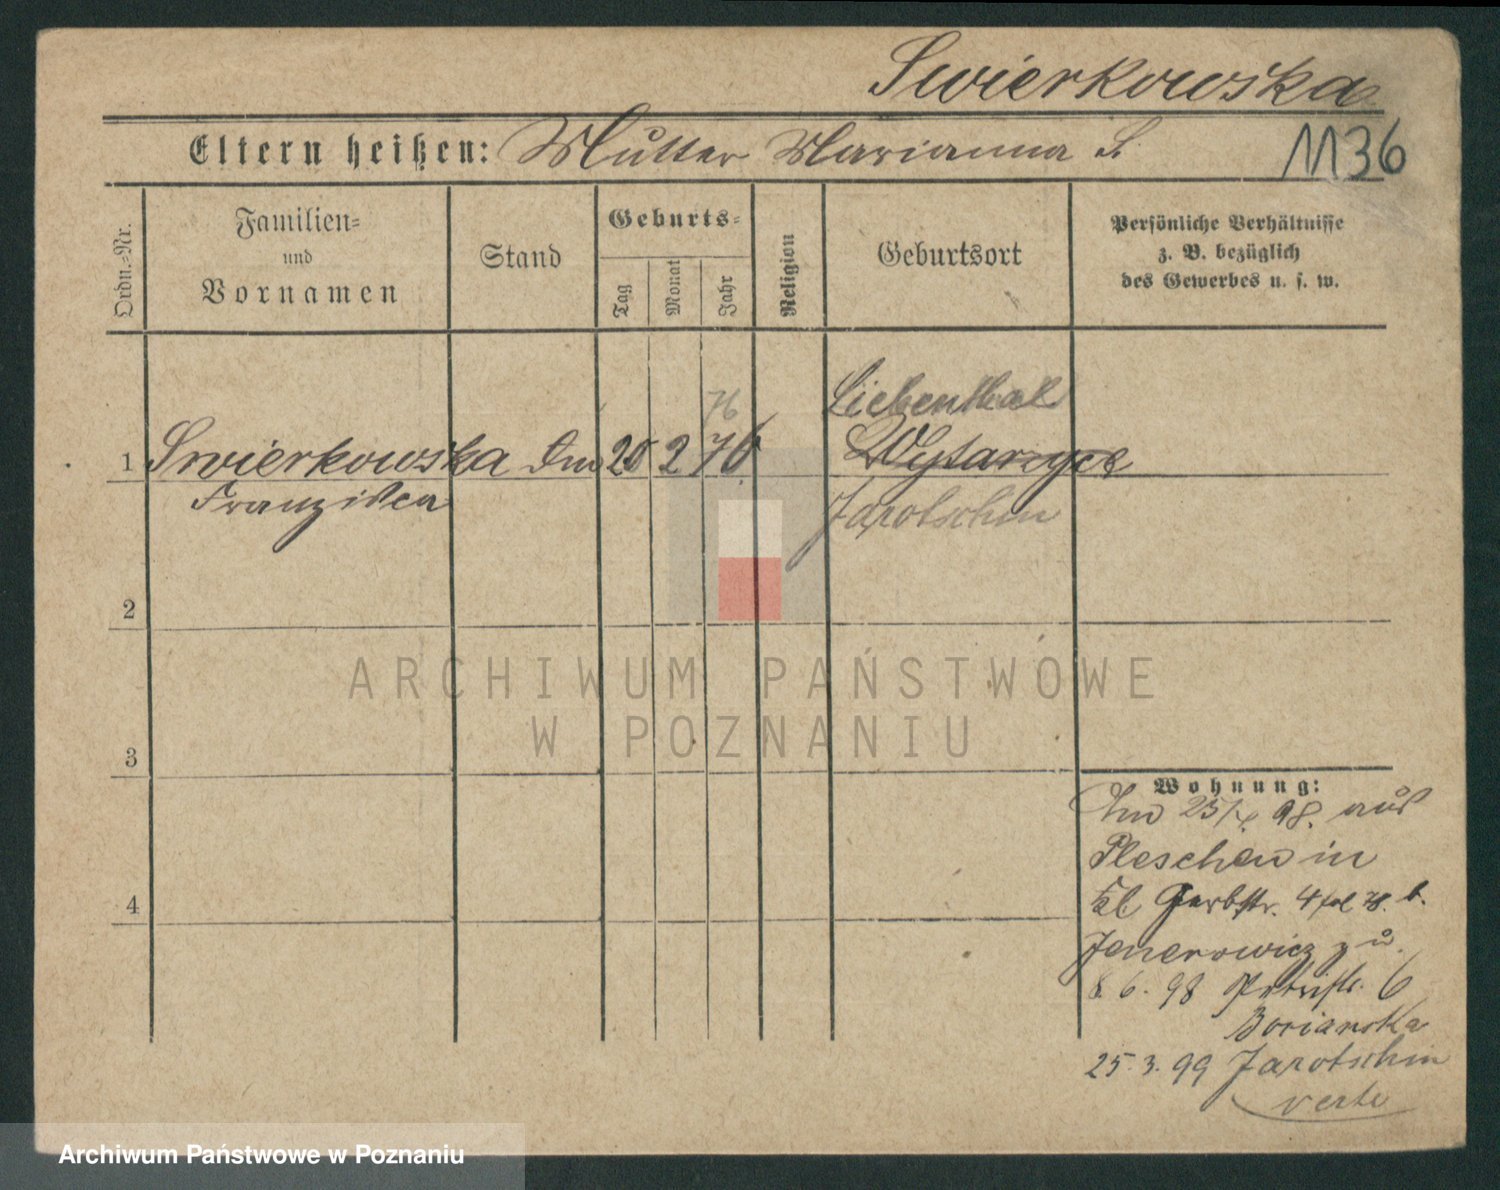 Swierkowska
Eltern heißen: Mutter Marianna S.
1136
Ordn.-Nr.
Familien-
und
Vornamen
Stand
Geburts-
Tag
Monat
Jahr
Religion
Geburtsort
Persönliche Verhältnisse
z. B. bezüglich
des Gewerbes u. s. w.
76
Liebenthal
1 Swierkowska 20 2 76 Wytarzyce
Franziska
Jarotschin
2
3
4
Wohnung:
98. aus
Pleschen in
Gerbstr. 4 b.
Jenerowicz
8. 6. 98 6
Borianska
25. 3. 99 Jarotschin
verte
ARCHIWUM PAŃSTWOWE
W POZNANIU
Archiwum Państwowe w Poznaniu